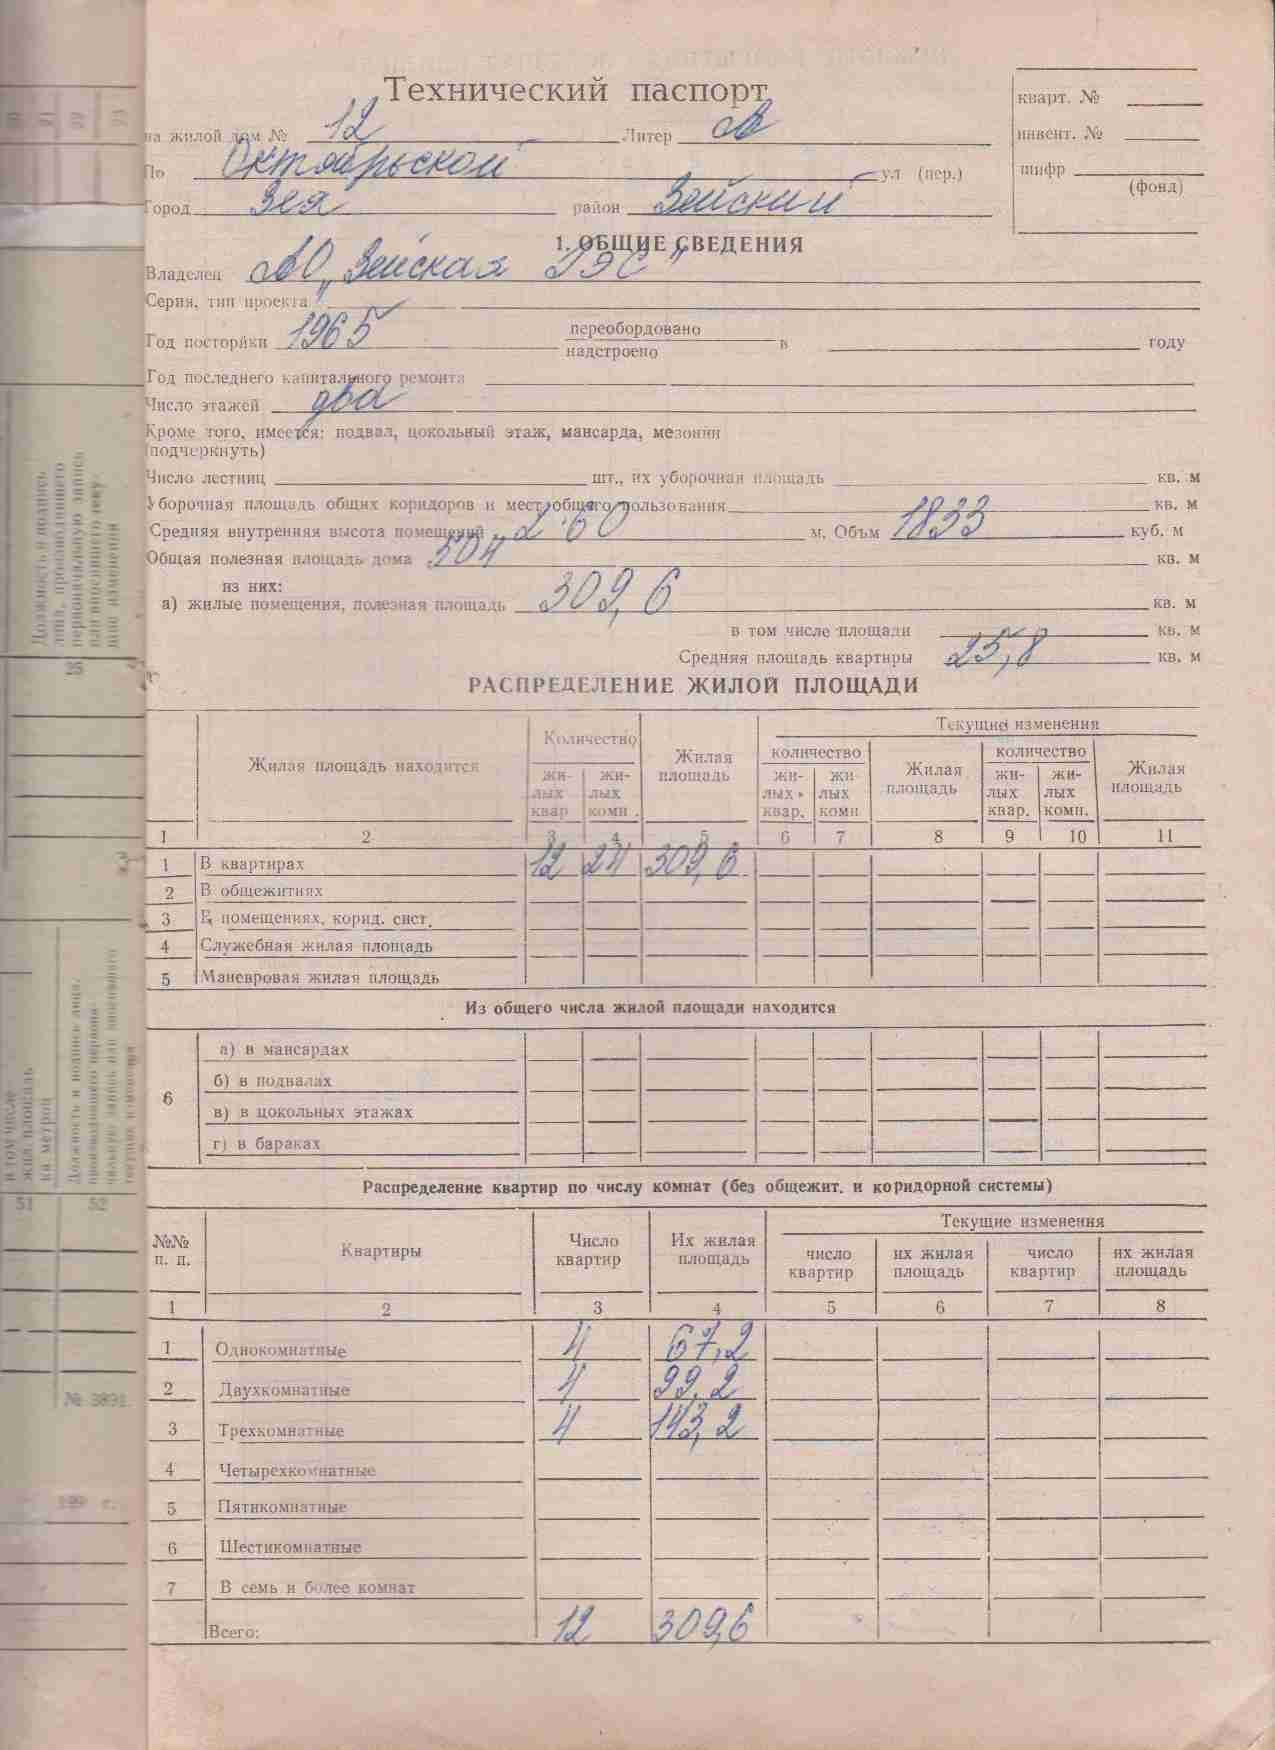 Технический паспорт
на жилой дом № 12 Литер А
кварт. №
инвент. №
шифр
(фонд)
По Октябрьской ул (пер.)
Город Зея район Зейский
1. ОБЩИЕ СВЕДЕНИЯ
Владелец АО „Зейская ГЭС"
Серия, тип проекта
Год посторйки 1965 переобордовано в году
надстроено
Год последнего капитального ремонта
Число этажей два
Кроме того, имеется: подвал, цокольный этаж, мансарда, мезонин
(подчеркнуть)
Число лестниц шт., их уборочная площадь кв. м
Уборочная площадь общих коридоров и мест общего пользования кв. м
Средняя внутренняя высота помещений 2.60 м, Объм 1833 куб. м
Общая полезная площадь дома 504 кв. м
из них:
а) жилые помещения, полезная площадь 309,6 кв. м
в том числе площади кв. м
Средняя площадь квартиры 25,8 кв. м
РАСПРЕДЕЛЕНИЕ ЖИЛОЙ ПЛОЩАДИ
Жилая площадь находится Количество Жилая площадь Текущие изменения
количество Жилая площадь количество Жилая площадь
жи- лых квар жи- лых комн. жи- лых квар. жи- лых комн жи- лых квар. жи- лых комн.
1 2 3 4 5 6 7 8 9 10 11
1 В квартирах 12 24 309,6
2 В общежитиях
3 В помещениях, корид. сист.
4 Служебная жилая площадь
5 Маневровая жилая площадь
Из общего числа жилой площади находится
6
а) в мансардах
б) в подвалах
в) в цокольных этажах
г) в бараках
Распределение квартир по числу комнат (без общежит. и коридорной системы)
№№ п. п. Квартиры Число квартир Их жилая площадь Текущие изменения
число квартир их жилая площадь число квартир их жилая площадь
1 2 3 4 5 6 7 8
1 Однокомнатные 4 67,2
2 Двухкомнатные 4 99,2
3 Трехкомнатные 4 143,2
4 Четырехкомнатные
5 Пятикомнатные
6 Шестикомнатные
7 В семь и более комнат
Всего: 12 309,6
Должность и подпись
лица, производившего
первоначальную запись
25
в том числе
жил. площадь
кв. метров
Должность и подпись лица,
51 52
199 г.